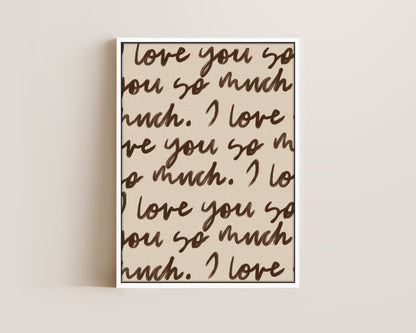 love you so
you so much
much. I love
ve you so m
o much. I lo
I love you so
you so much
much. I love